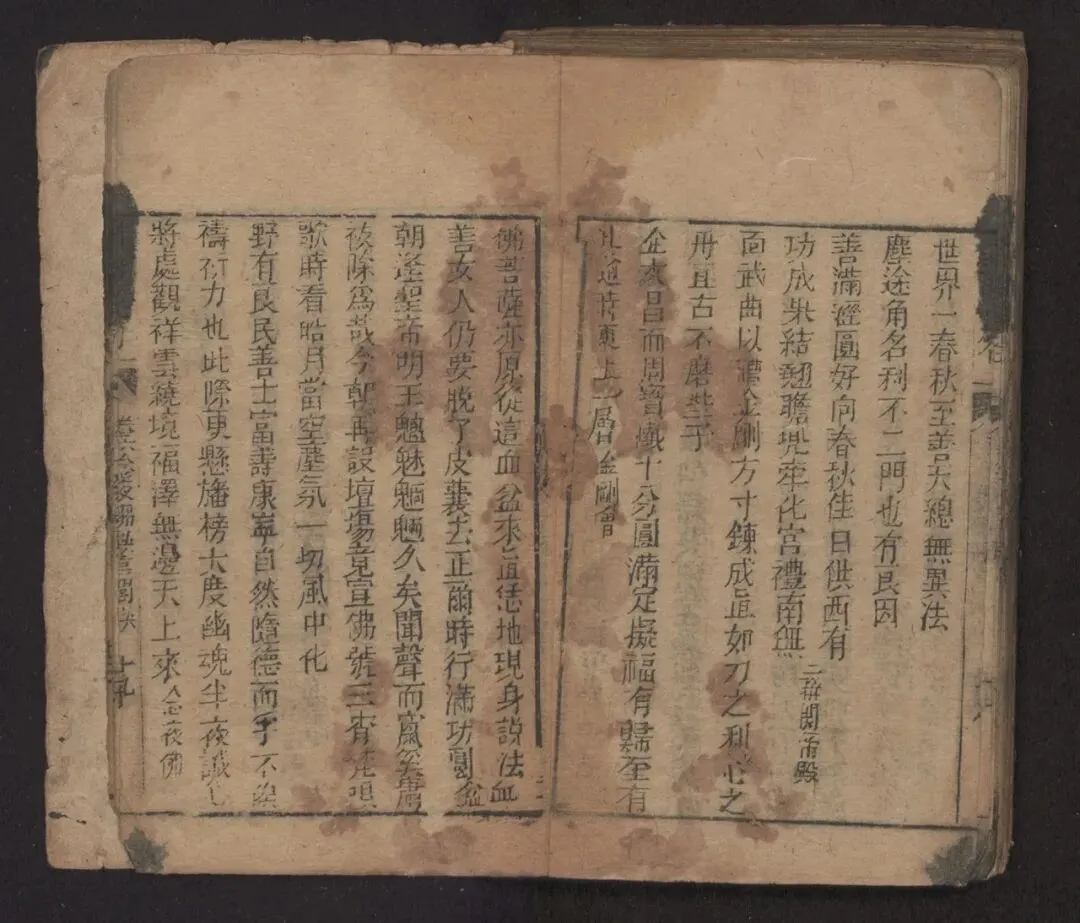 世界一春秋至善天總無異法
塵途角名利不二門也有良因
善滿瀝圓好向春秋佳日供西有
功成果結翹瞻兜率化宮禮南無
三教關帝殿
面武曲以禮金剛方寸鍊成直如刀之利心之
丹亘古不磨些子
企文昌而周寶懺十分圓滿定擬福有歸至有
道時更上一層 金剛會
佛菩薩亦原從這血盆來直恁地現身說法血
善女人仍要脫了皮囊去正爾時行滿功圓 盆
朝逢聖帝明王魑魅魍魎久矣聞聲而竄矣庸
祓除為哉今朝再設壇場竟宣佛號三宵梵唄
歌時看皓月當空塵氛一切風中化
野有良民善士富壽康寧自然隨德而孚不俟
禱祈力也此際更懸旛榜大度幽魂半夜誠
將處觀祥雲繞境福澤無邊天上來 念夜佛